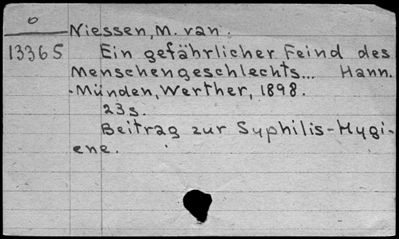 o
Niessen, M. van.
13365 Ein gefährlicher Feind des
Menschengeschlechts... Hann.
-Münden, Werther, 1898.
23s.
Beitrag zur Syphilis-Hygi-
ene.